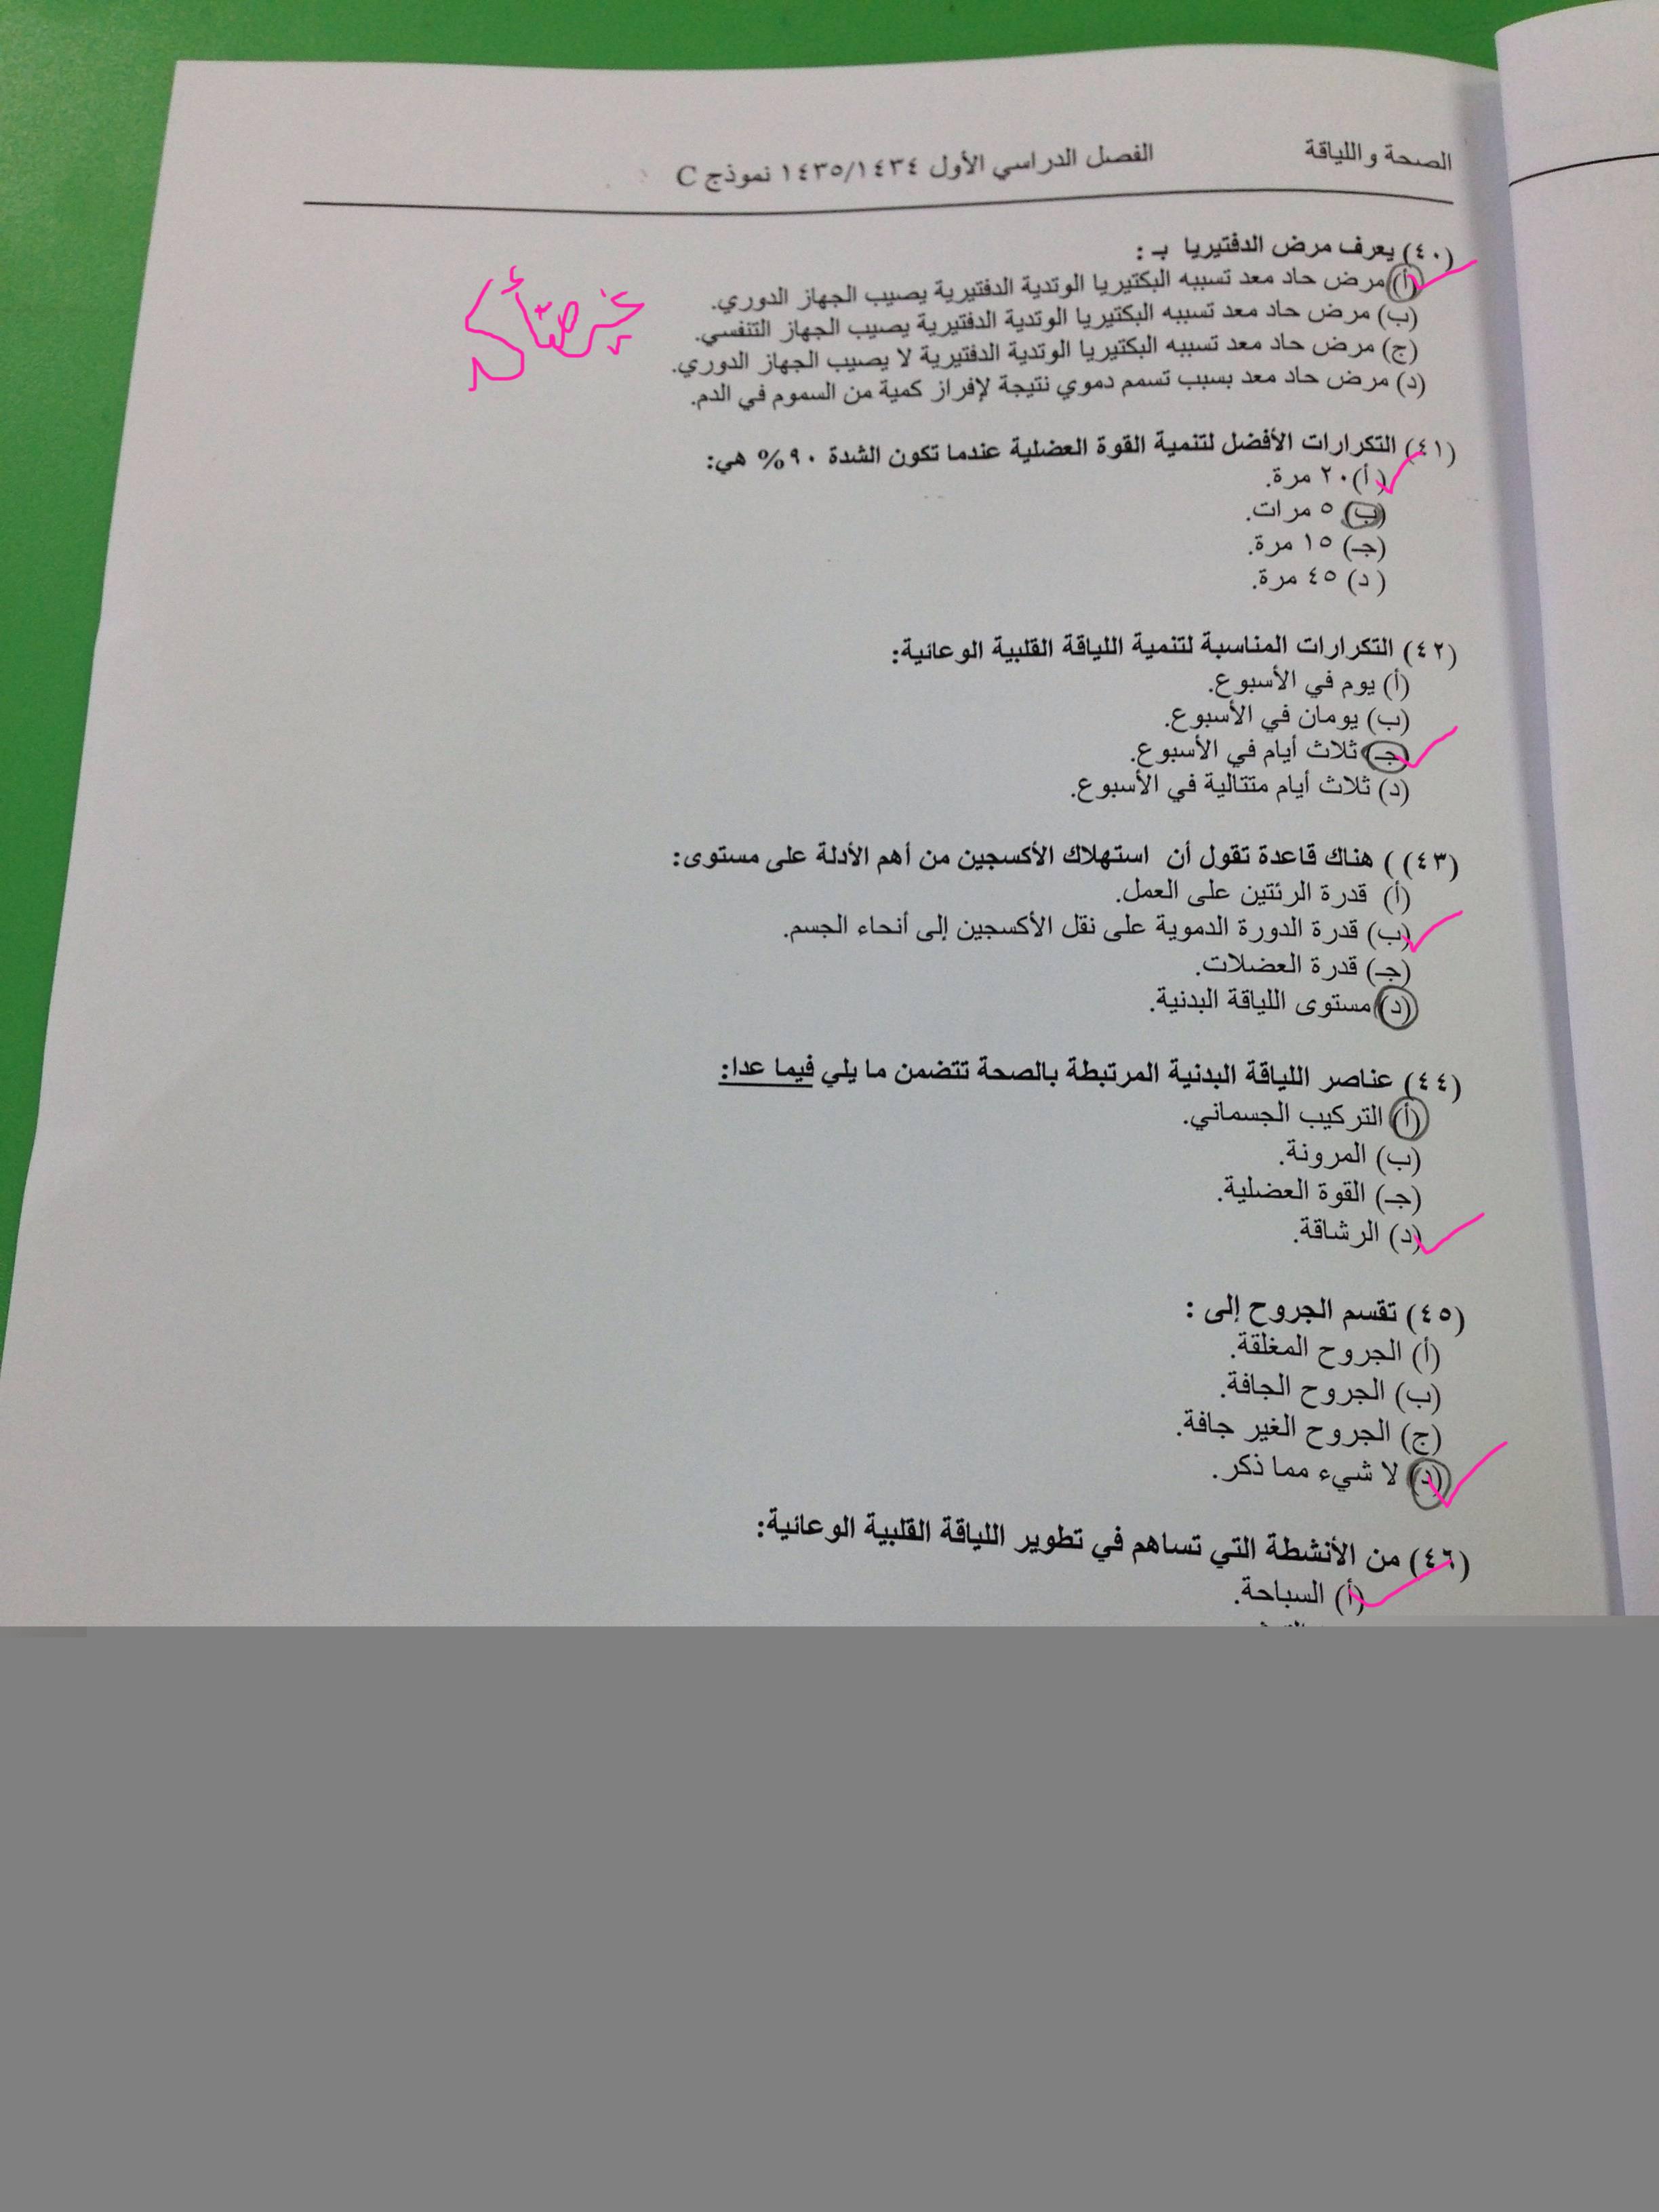 الصحة واللياقة الفصل الدراسي الأول ١٤٣٥/١٤٣٤ نموذج C
(٤٠) يعرف مرض الدفتيريا بـ :
(أ) مرض حاد معد تسببه البكتيريا الوتدية الدفتيرية يصيب الجهاز الدوري.
(ب) مرض حاد معد تسببه البكتيريا الوتدية الدفتيرية يصيب الجهاز التنفسي.
(ج) مرض حاد معد تسببه البكتيريا الوتدية الدفتيرية لا يصيب الجهاز الدوري.
(د) مرض حاد معد بسبب تسمم دموي نتيجة لإفراز كمية من السموم في الدم.
غير متأكد
(٤١) التكرارات الأفضل لتنمية القوة العضلية عندما تكون الشدة ٩٠% هي:
(أ) ٢٠ مرة.
(ب) ٥ مرات.
(جـ) ١٥ مرة.
(د) ٤٥ مرة.
(٤٢) التكرارات المناسبة لتنمية اللياقة القلبية الوعائية:
(أ) يوم في الأسبوع.
(ب) يومان في الأسبوع.
(جـ) ثلاث أيام في الأسبوع.
(د) ثلاث أيام متتالية في الأسبوع.
(٤٣) ) هناك قاعدة تقول أن استهلاك الأكسجين من أهم الأدلة على مستوى:
(أ) قدرة الرئتين على العمل.
(ب) قدرة الدورة الدموية على نقل الأكسجين إلى أنحاء الجسم.
(جـ) قدرة العضلات.
(د) مستوى اللياقة البدنية.
(٤٤) عناصر اللياقة البدنية المرتبطة بالصحة تتضمن ما يلي فيما عدا:
(أ) التركيب الجسماني.
(ب) المرونة.
(جـ) القوة العضلية.
(د) الرشاقة.
(٤٥) تقسم الجروح إلى :
(أ) الجروح المغلقة.
(ب) الجروح الجافة.
(ج) الجروح الغير جافة.
(د) لا شيء مما ذكر.
(٤٦) من الأنشطة التي تساهم في تطوير اللياقة القلبية الوعائية:
(أ) السباحة.